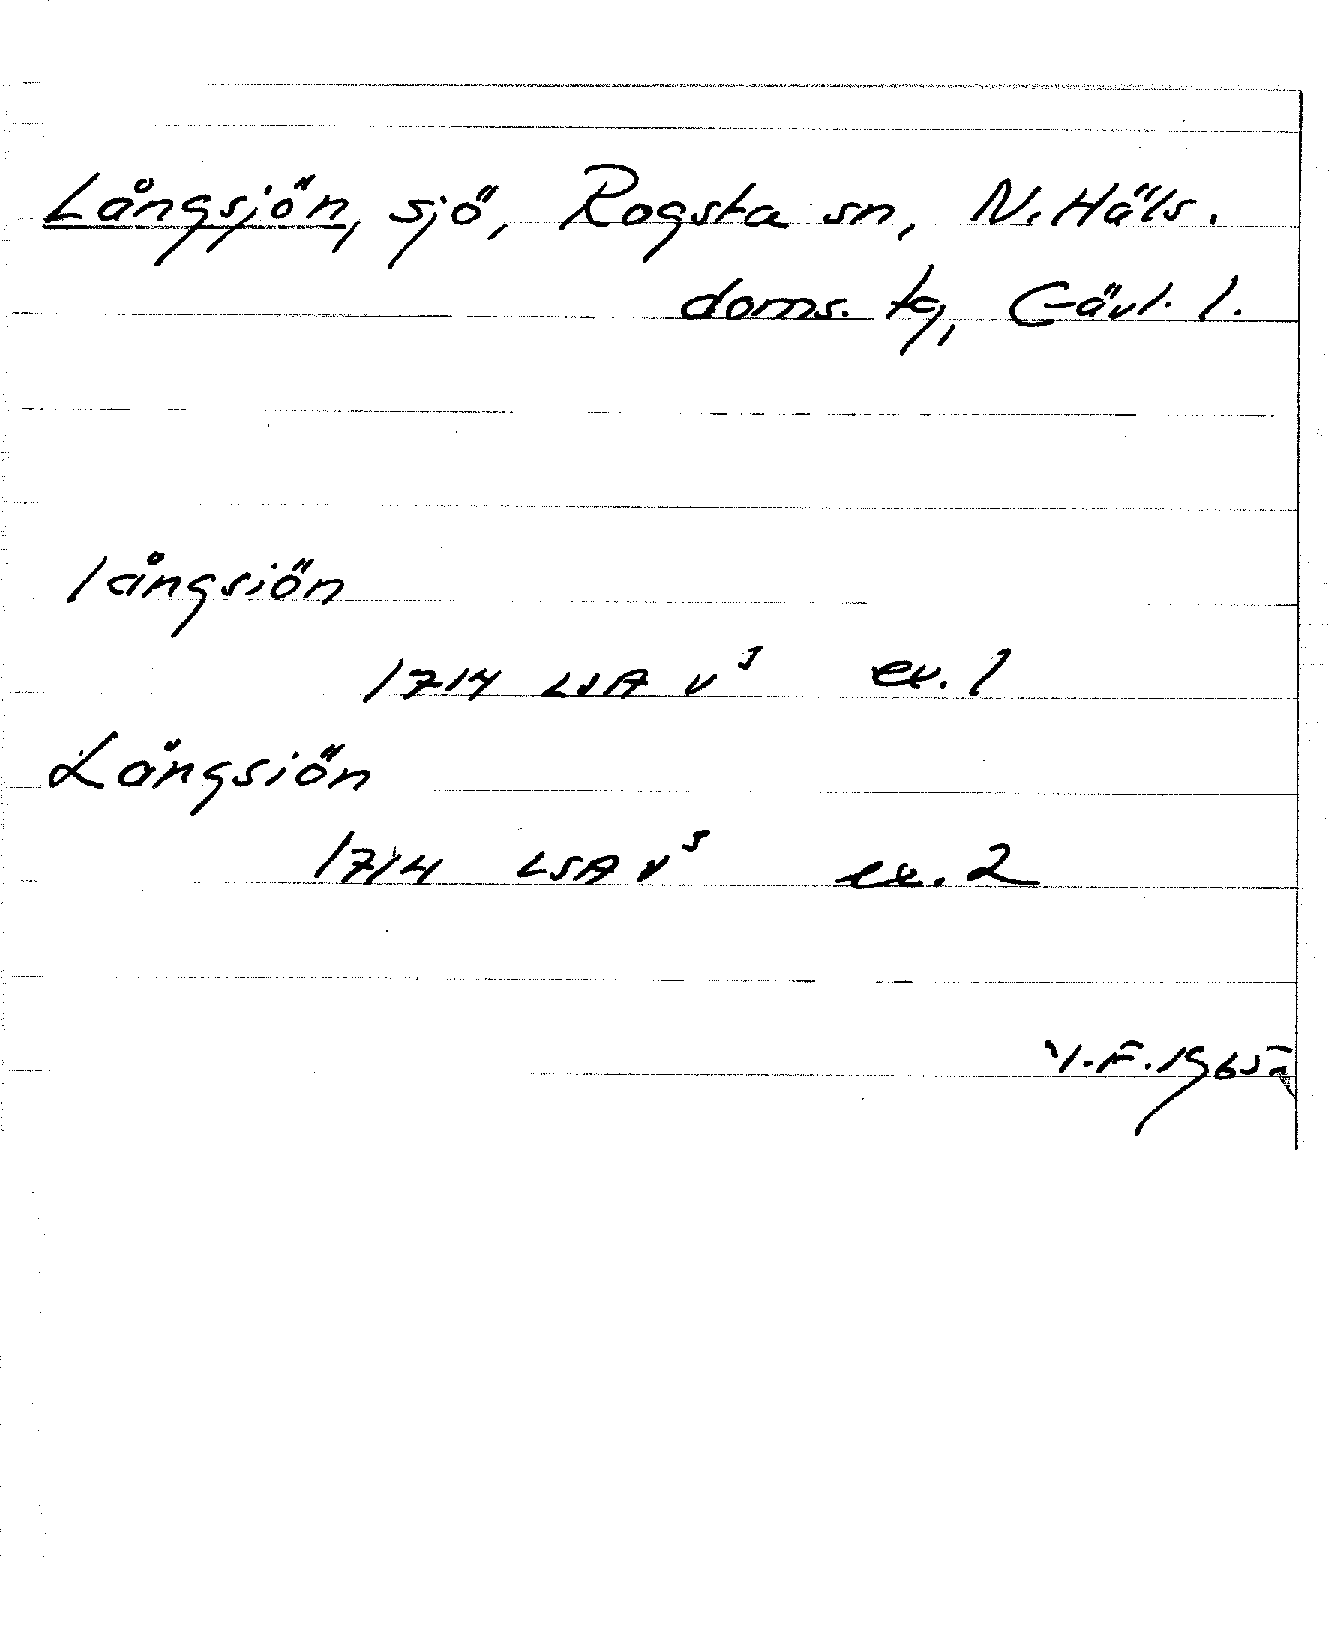 Långsjön, sjö, Rogsta sn, N. Häls.
doms. tg, Gävl. l.
långsiön
1714 LSA v⁵ ex. 1
Långsiön
1714 LSA v⁵ ex. 2
V.F. 1965